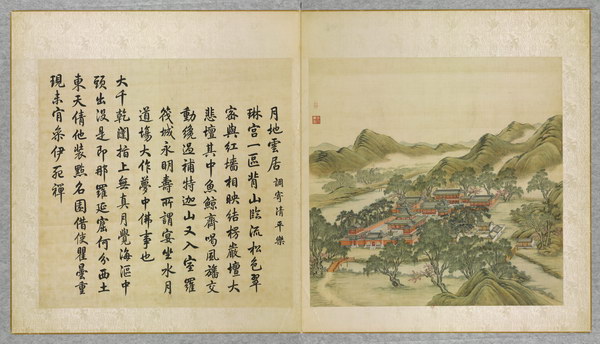 月地雲居 調寄清平樂
琳宮一區背山臨流松色翠
密與紅墻相映結楞嚴壇大
悲壇其中魚鯨齊喝風旛交
動繞過補特迦山又入室羅
筏城永明壽所謂宴坐水月
道場大作夢中佛事也
大千乾闥指上無真月覺海漚中
頭出沒是即那羅延窟何分西土
東天倩他裝點名園借使瞿曇重
現未肯參伊死禪